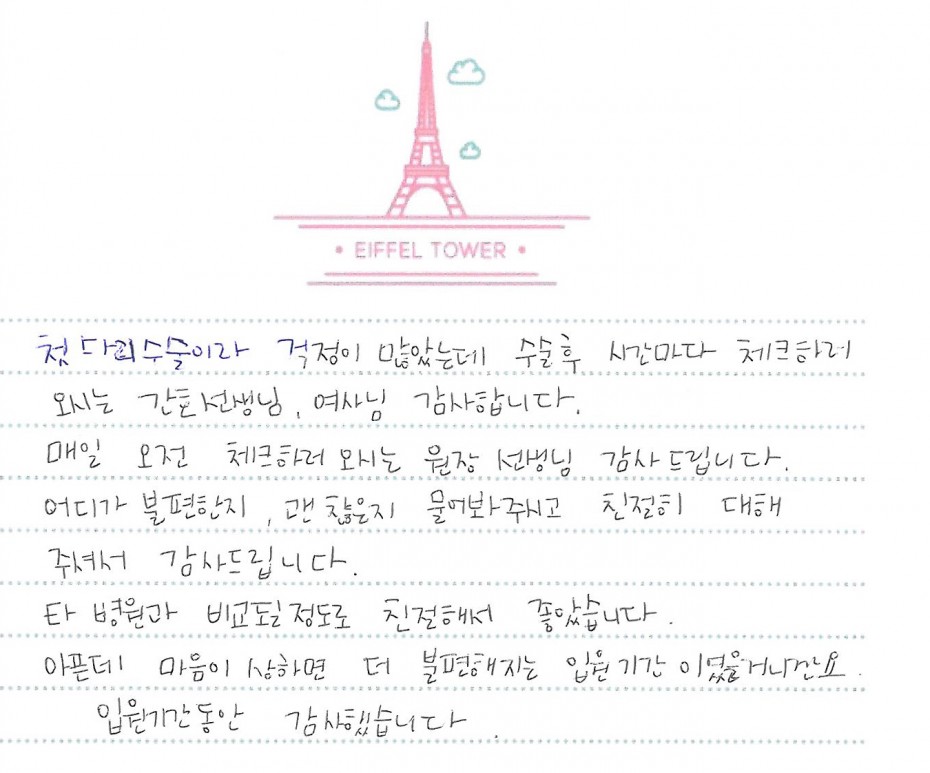 • EIFFEL TOWER •
첫 다리수술이라 걱정이 많았는데 수술후 시간마다 체크하러
오시는 간호선생님, 여사님 감사합니다.
매일 오전 체크하러 오시는 원장 선생님 감사드립니다.
어디가 불편한지, 괜찮은지 물어봐주시고 친절히 대해
주셔서 감사드립니다.
타 병원과 비교될정도로 친절해서 좋았습니다.
아픈데 마음이 상하면 더 불편해지는 입원기간이였을거니깐요.
입원기간동안 감사했습니다.